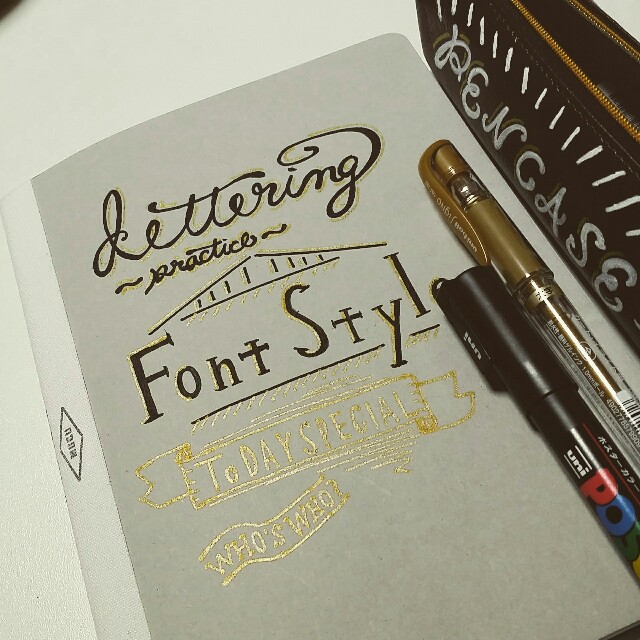 Lettering
~practice~
Font Style
ToDAY SPECIAL
WHO'S.OHM
PENCASE
uni
uni
POS
ポスターカラー